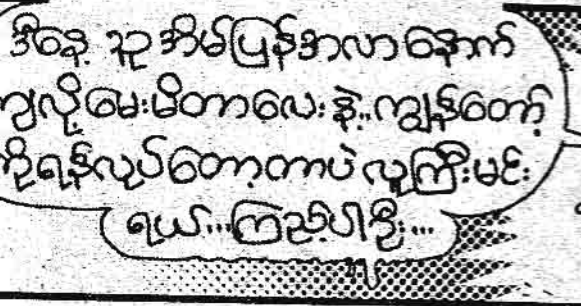 ဒီနေ့ သူ အိမ်ပြန်အလာ နောက်
ကျလို့ မေးမိတာလေး နဲ့.. ကျွန်တော့်
ကိုရန်လုပ်တော့တာပဲ လူကြီးမင်း
ရယ်...ကြည့်ပါဦး...